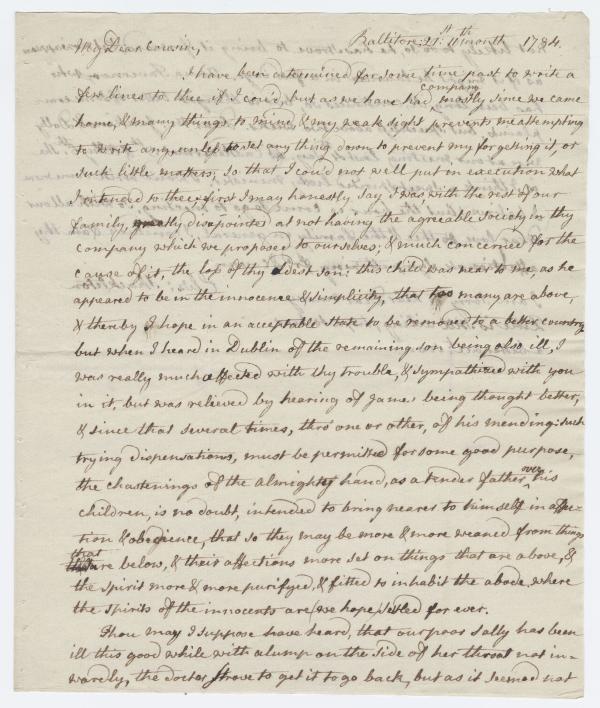 My Dear Cousin, Ballitore: 21st 11th month 1784.
I have been determined for some time past to write a
few lines to thee if I cou'd, but as we have had company mostly since we came
home, & many things to mind, & my weak sight prevents me attempting
to write any, unless to set any thing down to prevent my forgetting it, or
such little matters; so that I cou'd not well put in execution what
I intended to thee; first I may honestly say I was with the rest of our
family, disapointed at not having the agreeable society in thy
company which we proposed to ourselves; & much concerned for the
cause of it, the loss of thy eldest son: this child was near to me as he
appeared to be in the innocence & simplicity, that too many are above,
& thereby I hope in an acceptable state to be removed to a better country
but when I heard in Dublin of the remaining son being also ill, I
was really much affected with thy trouble, & sympathized with you
in it, but was relieved by hearing of James being thought better,
& since that several times, thro' one or other, of his mending: such
trying dispensations, must be permitted for some good purpose,
the chastenings of the almighty hand, as a tender father over his
children, is no doubt, intended to bring nearer to himself in affec-
tion & obedience, that so they may be more & more weaned from things
that are below, & their affections more set on things that are above, &
the spirit more & more purifyed, & fitted to inhabit the abode where
the spirits of the innocents are (we hope) settled for ever.
Thou may I suppose have heard, that our poor Sally has been
ill this good while with a lump on the side of her throat not in-
wardly, the doctor strove to get it to go back, but as it seemed not